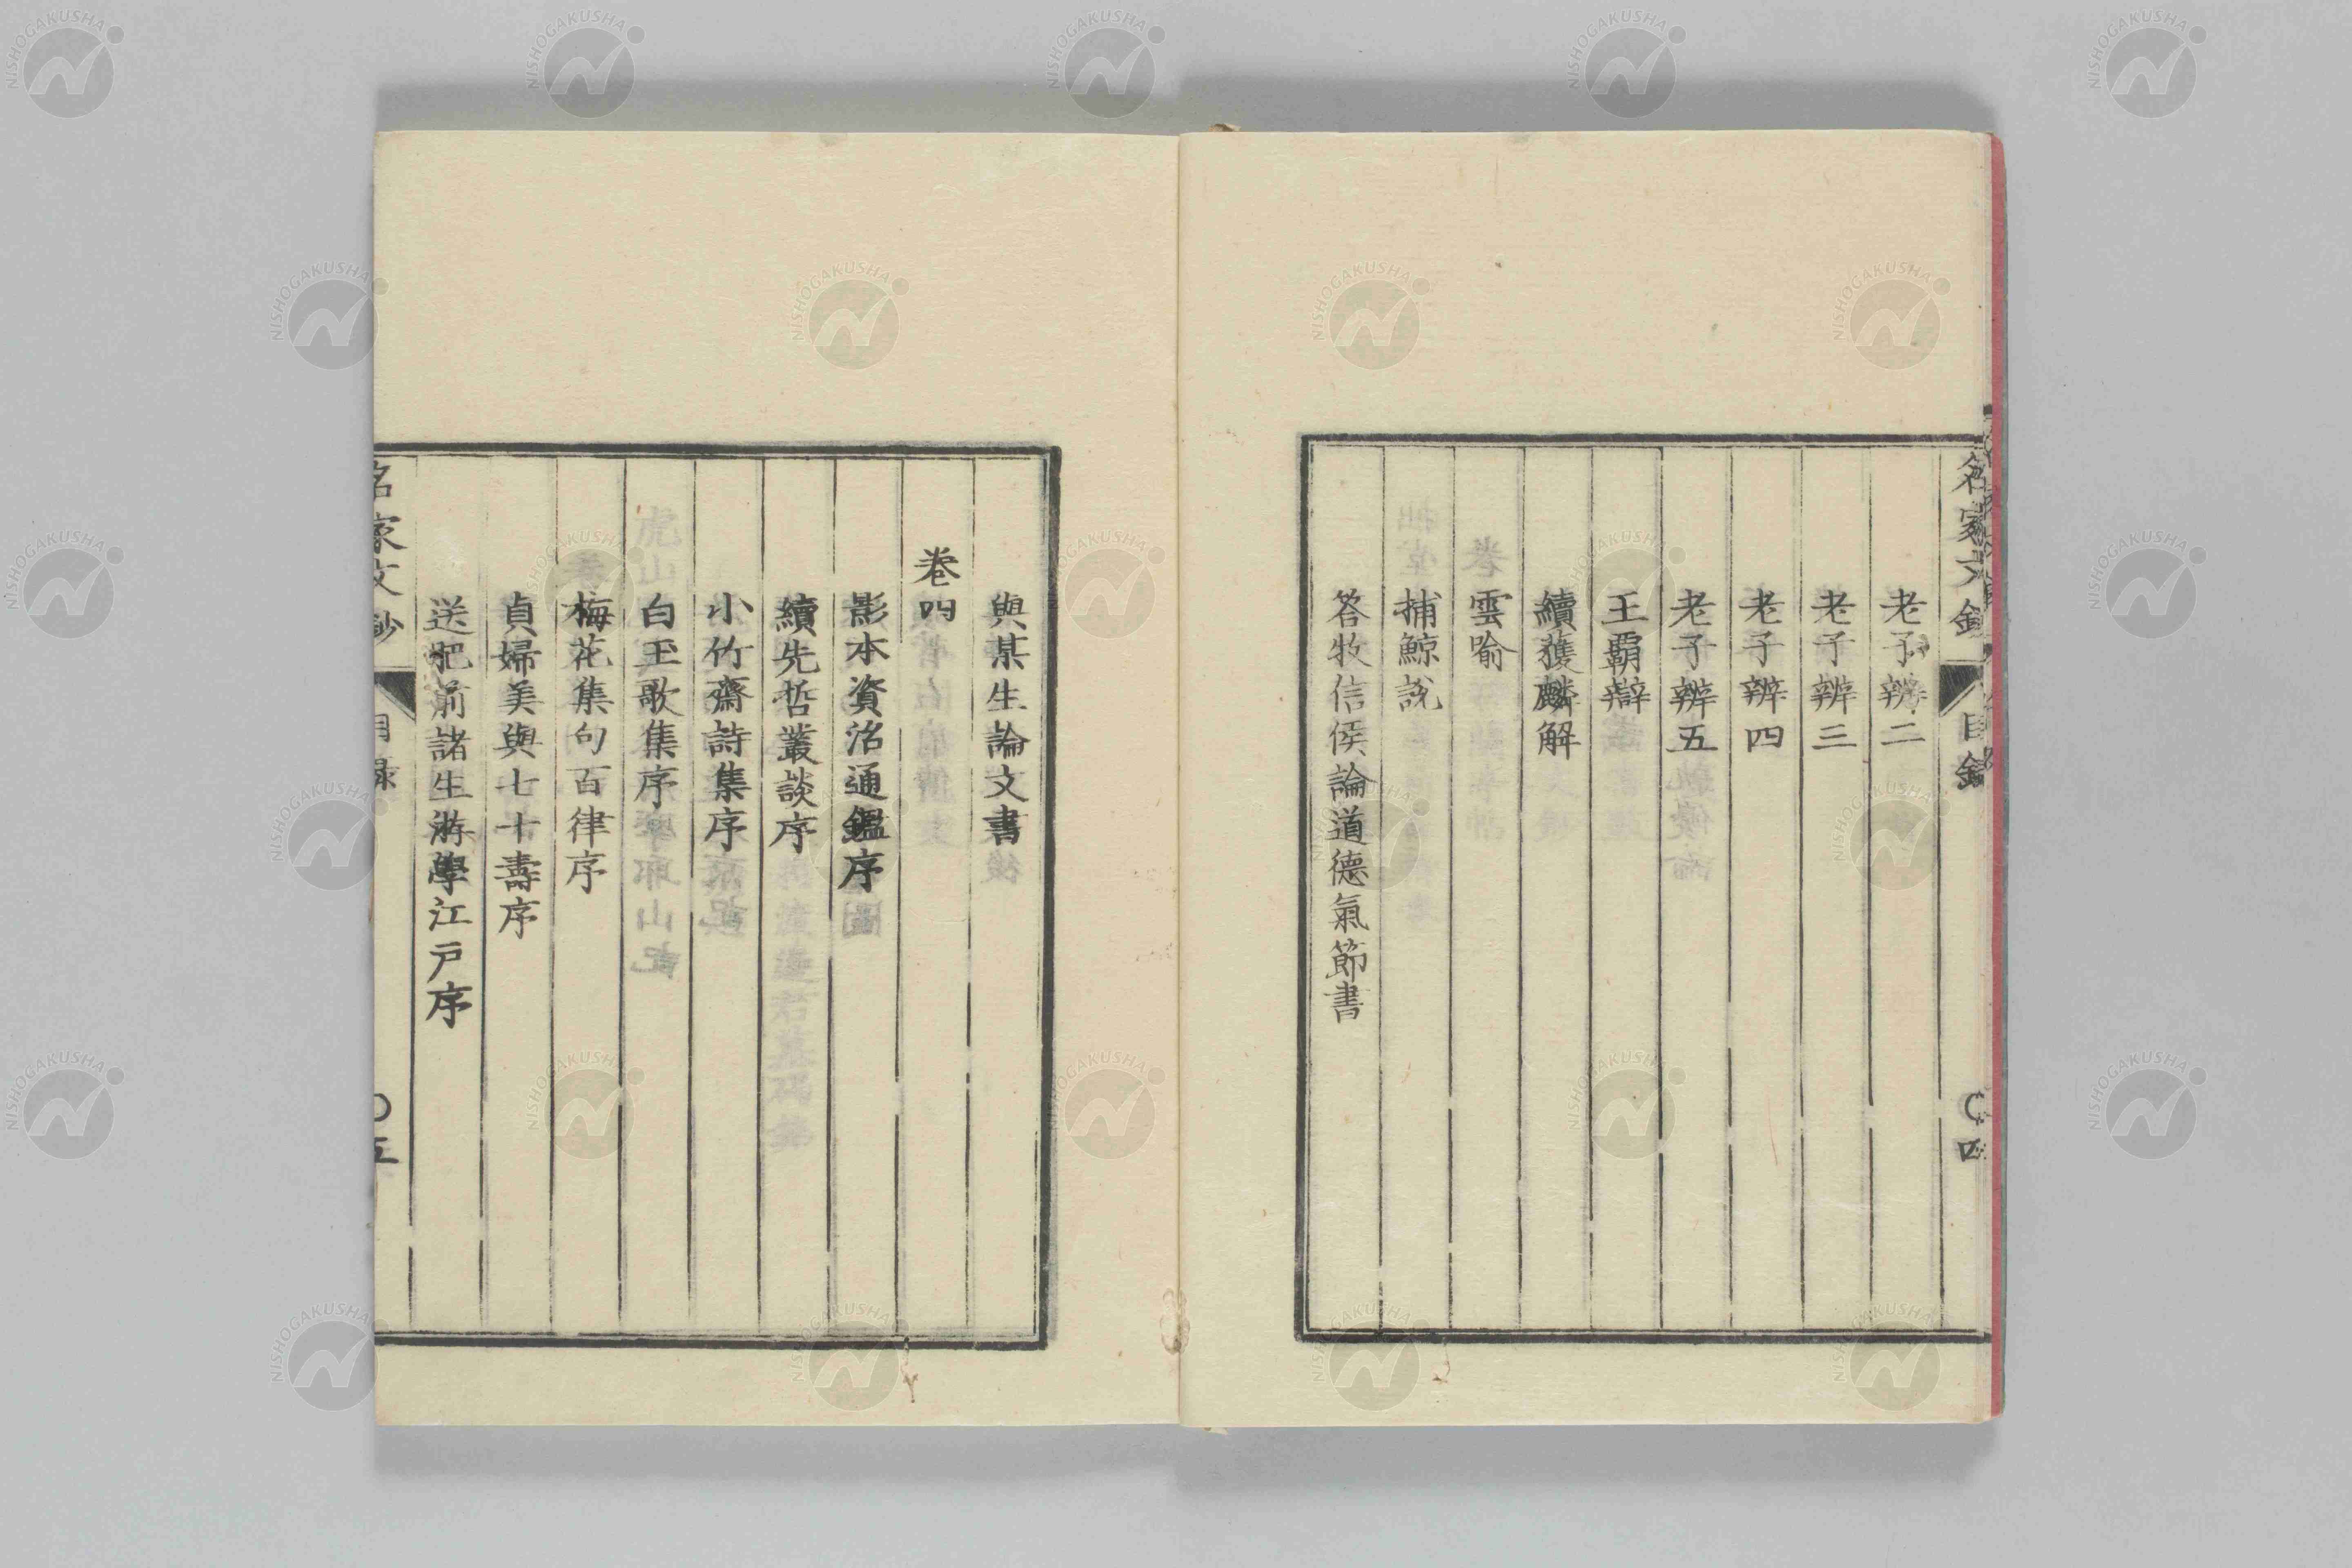 老子辨二
老子辨三
老子辨四
老子辨五
王霸辯
續獲麟解
雲喻
捕鯨說
答牧信侯論道德氣節書
名家文鈔
目錄
〇四
與某生論文書
卷四
影本資治通鑑序
續先哲叢談序
小竹齋詩集序
白玉歌集序
梅花集句百律序
貞婦美與七十壽序
送肥前諸生游學江戶序
名家文鈔
目録
〇五
NISHOGAKUSHA